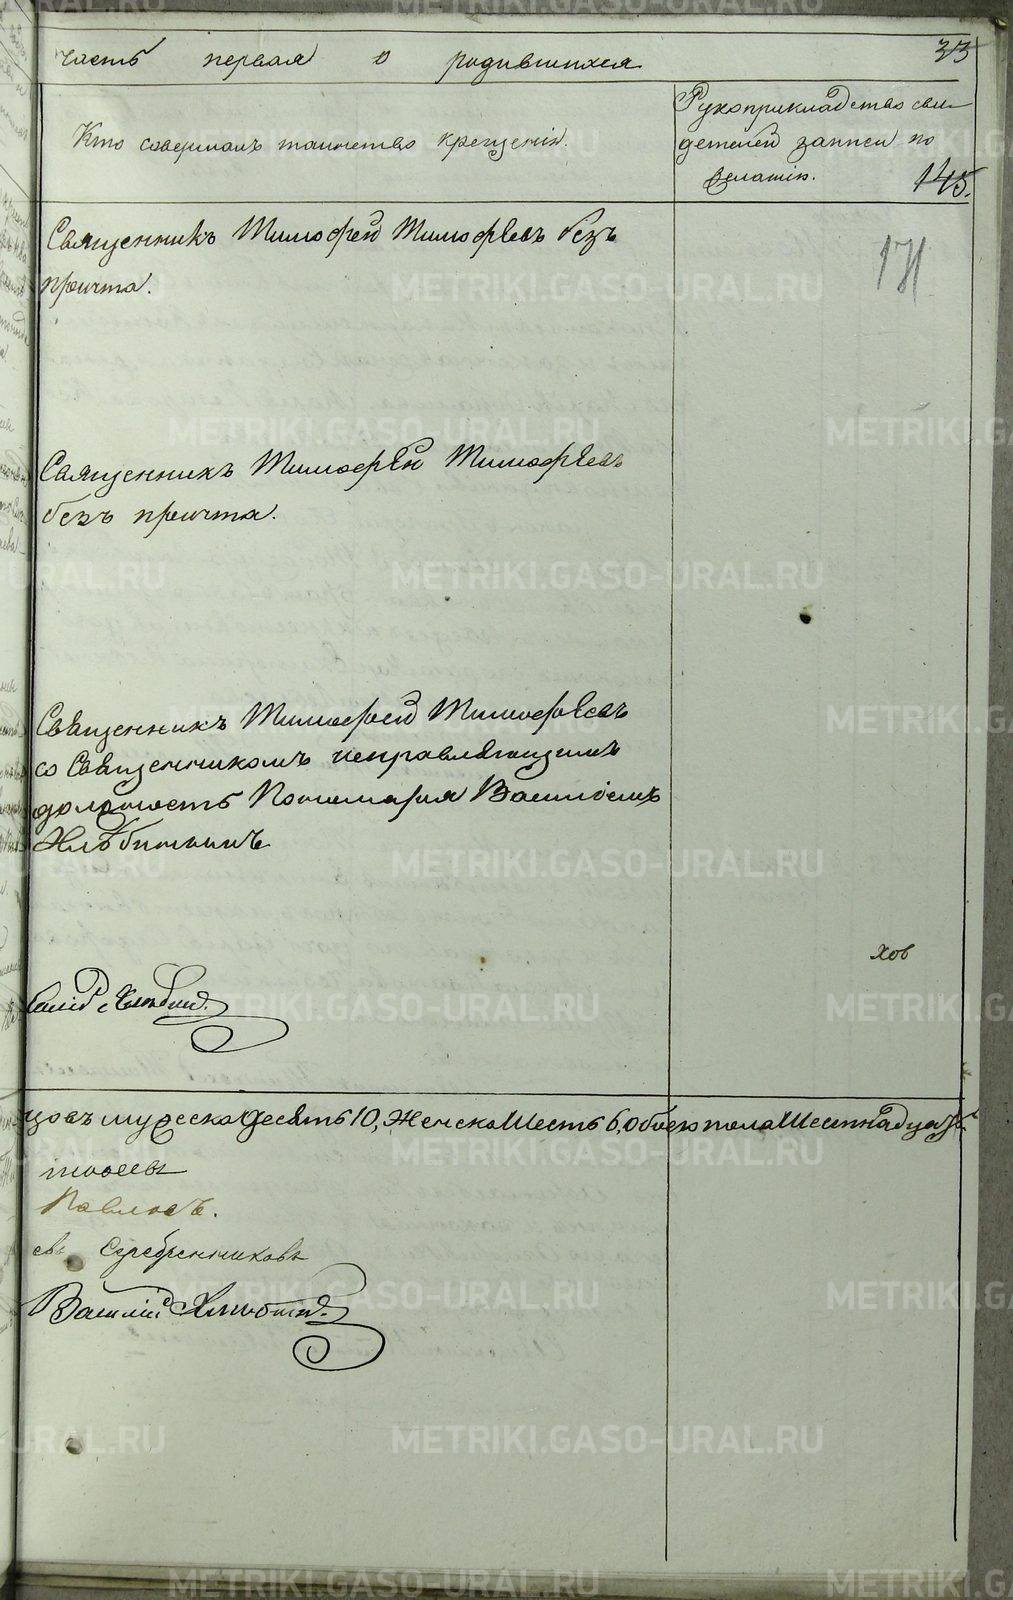 часть первая о родившихся 33
Кто совершалъ таинство крещенiя.
Рукоприкладство сви-
детелей записи по
желанiю. 145.
Священникъ Тимофей Тимофѣевъ безъ
причта.
171
Священникъ Тимофѣй Тимофѣевъ
безъ причта.
Священникъ Тимофей Тимофѣевъ
со Священникомъ исправляющимъ
должность Пономаря Василiемъ
Хлѣбинымъ
хов
цовъ мужеска Десять 10, Женска Шесть 6, обоего пола Шестнадцать
Павловъ.
евъ Серебренниковъ
Василiй
METRIKI.GASO-URAL.RU